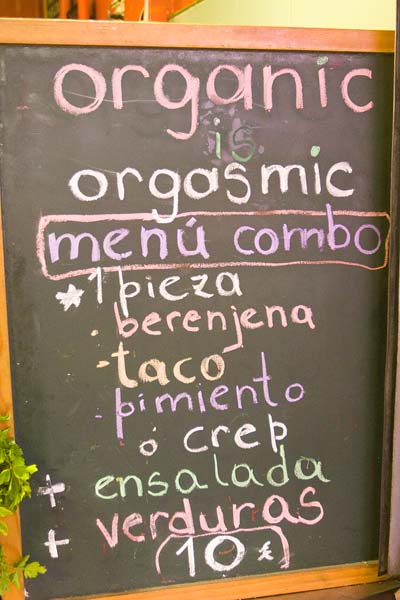 organic
is
orgasmic
menú combo
* 1 pieza
- berenjena
- taco
- pimiento
ó crep
+ ensalada
+ verduras
(10 €)